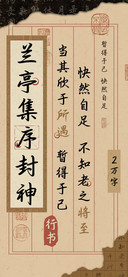 兰亭集序封神
行书
当其欣于所遇 暂得于己
怏然自足 不知老之将至
暂得于己 怏然自足
2万字